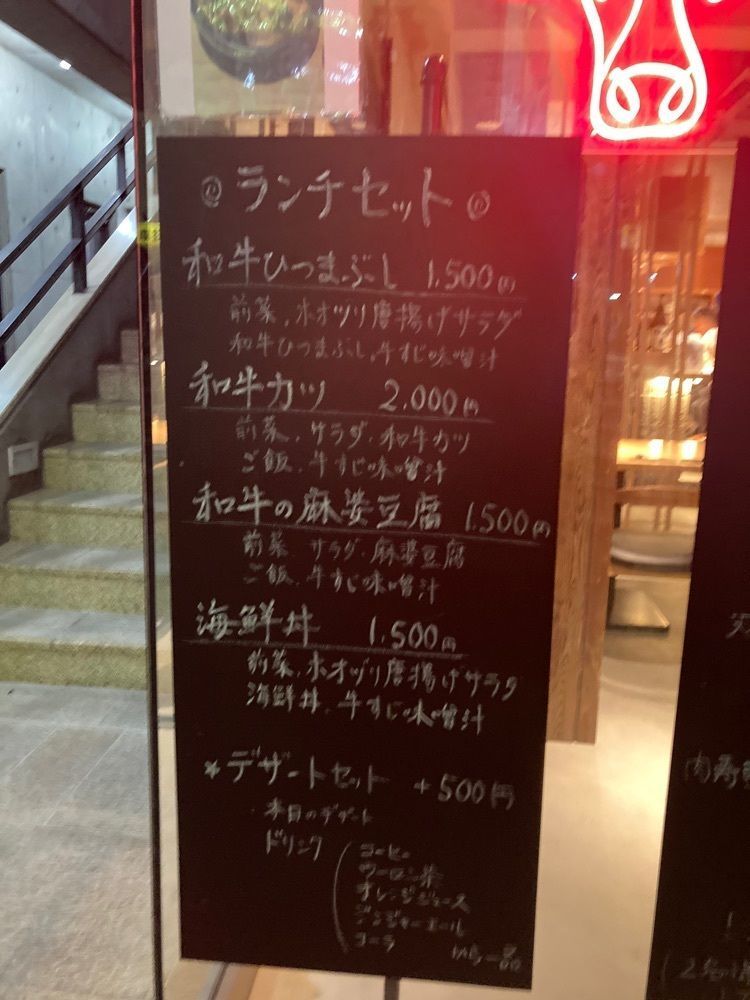 ランチセット
和牛ひつまぶし 1.500円
前菜、ホオヅリ唐揚げサラダ
和牛ひつまぶし、牛すじ味噌汁
和牛カツ 2.000円
前菜、サラダ、和牛カツ
ご飯、牛すじ味噌汁
和牛の麻婆豆腐 1.500円
前菜 サラダ、麻婆豆腐
ご飯、牛すじ味噌汁
海鮮丼 1.500円
前菜、ホオヅリ唐揚げサラダ
海鮮丼、牛すじ味噌汁
*デザートセット +500円
・本日のデザート
ドリンク
コーヒー
ウーロン茶
オレンジジュース
ジンジャーエール
コーラ
から一品
天
肉寿
(2名